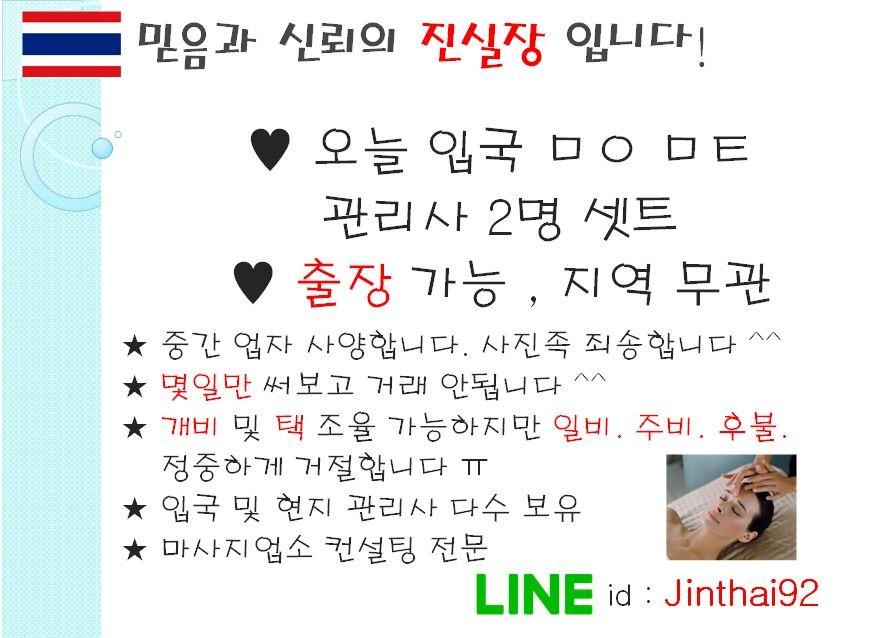 믿음과 신뢰의 진실장 입니다!
♥ 오늘 입국 ㅁㅇ ㅁㅌ
관리사 2명 셋트
♥ 출장 가능 , 지역 무관
★ 중간 업자 사양합니다. 사진족 죄송합니다 ^^
★ 몇일만 써보고 거래 안됩니다 ^^
★ 개비 및 택 조율 가능하지만 일비. 주비. 후불.
정중하게 거절합니다 ㅠ
★ 입국 및 현지 관리사 다수 보유
★ 마사지업소 컨설팅 전문
LINE id : Jinthai92